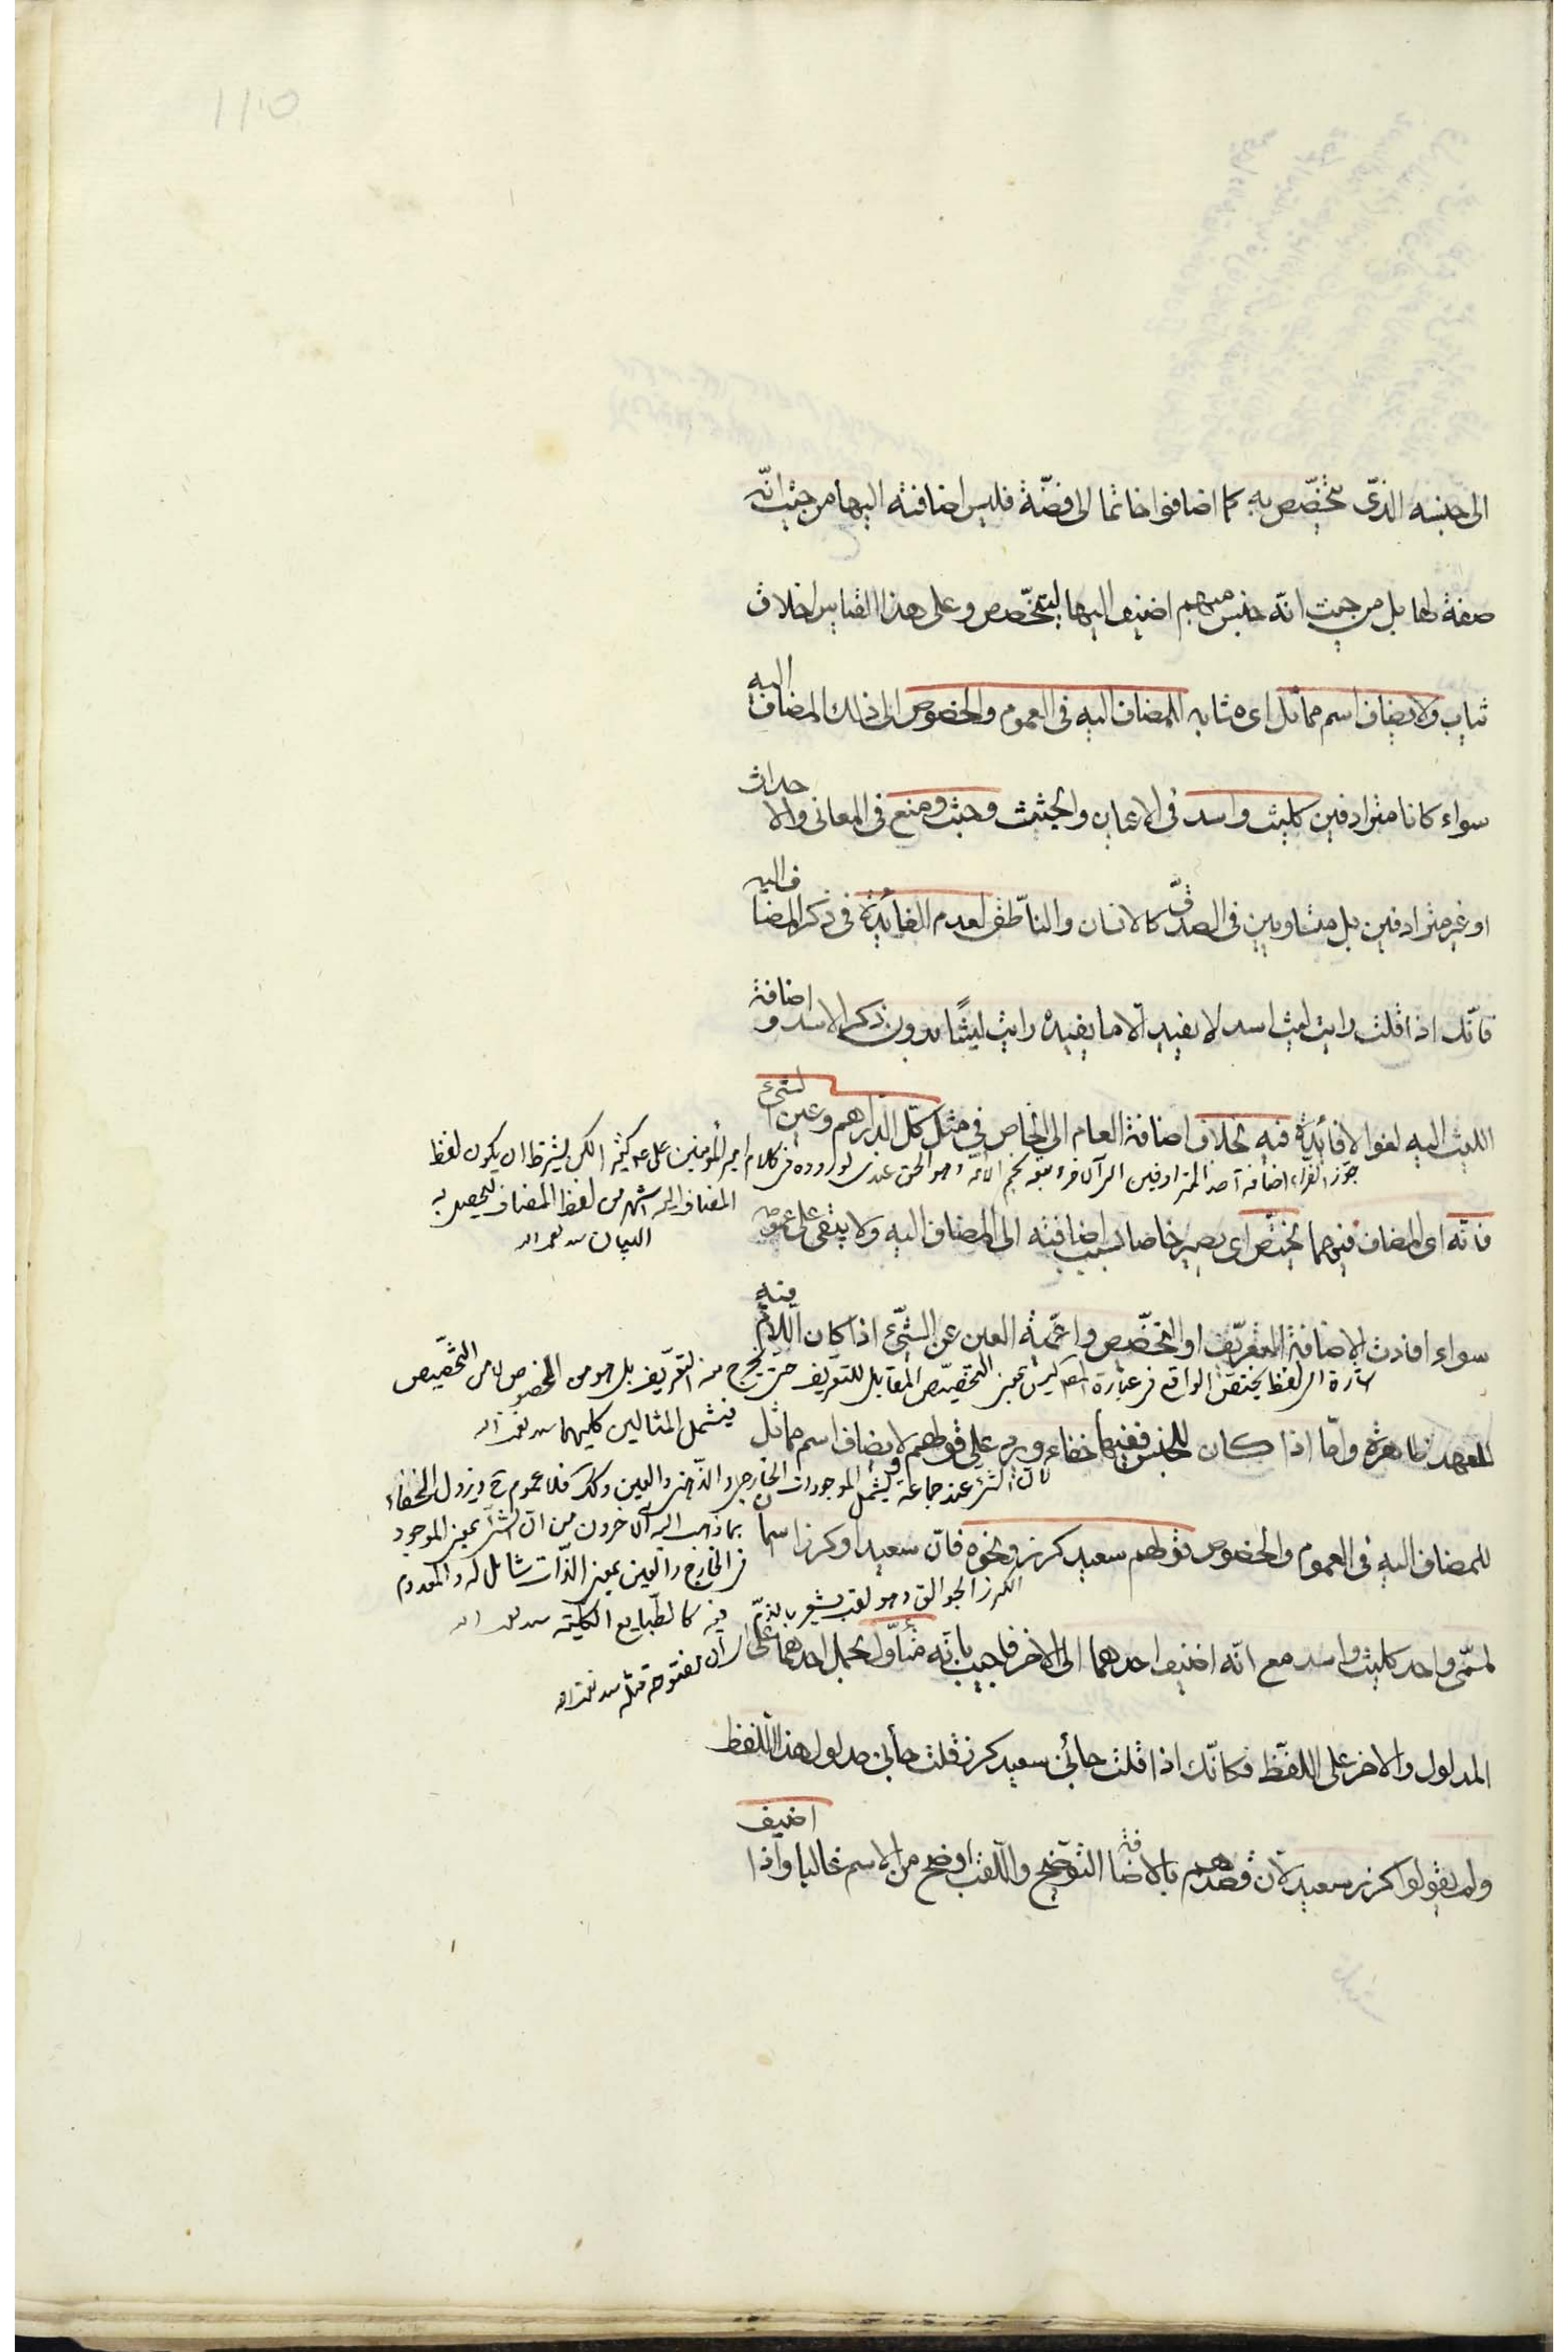 الى جنسه الذى يتخصّص به كما اضافوا خاتما الى فضّة فليس اضافته اليها من حيث انّه
صفة لها بل من حيث انّه جنس مبهم اضيف اليها ليتخصّص وعلى هذا القياس اخلاق
ثياب ولا يضاف اسم مماثل اى مشابه للمضاف اليه فى العموم والخصوص الى ذلك المضاف اليه
سواء كانا مترادفين كليث واسد فى الاعيان والجثث وحبس ومنع فى المعانى والاحداث
او غير مترادفين بل متساويين فى الصدق كالانسان والناطق لعدم الفائدة فى ذكر المضاف اليه
فانّك اذا قلت رايت ليث اسد لا يفيد الا ما يفيده رايت ليثا بدون ذكر الاسد و اضافة
الليث اليه لغوا لا فائدة فيه بخلاف اضافة العام الى الخاص فى مثل كلّ الدراهم وعين الشىء
جوّز الفرّاء اضافة احد المترادفين الى الآخر وتبعه نجم الائمّة وهو الحق عندى لوروده فى كلام امير المؤمنين على ع كثيرا لكن يشترط ان يكون لفظ
المضاف اليه اشهر من لفظ المضاف ليحصل به
البيان
فانّه اى المضاف فيهما يختصّ اى يصير خاصا بسبب اضافته الى المضاف اليه ولا يبقى على عمومه
سواء افادت الاضافة التعريف او التخصيص واعمّية العين عن الشىء اذا كان اللام فيه
اشارة الى لفظ يختصّ الواقع فى عبارة المص ليس بمعنى التخصيص المقابل للتعريف حتى يخرج منه التعريف بل هو من الخصوص لا من التخصيص
فيشمل المثالين كليهما
للعهد ظاهرة وامّا اذا كان للجنس ففيها خفاء ويرد على قولهم لا يضاف اسم مماثل
لان الشىء عند جماعة يشمل الموجودات الخارجى والذهنى والعين كذلك فلا عموم ح ويزول الخفاء
بما ذهب اليه الآخرون من ان الشىء بمعنى الموجود
فى الخارج والعين بمعنى الذات شامل له والمعدوم
فيه كالطبايع الكلية
للمضاف اليه فى العموم والخصوص قولهم سعيد كرز ونحوه فانّ سعيدا وكرزا اسمان
الكرز الجوالق وهو لقب يشعر بالذم
لمسمّى واحد كليث واسد مع انّه اضيف احدهما الى الاخر فاجيب بانّه متاوّل بحمل احدهما على
المدلول والاخر على اللفظ فكانّك اذا قلت جائنى سعيد كرز قلت جائنى مدلول هذا اللفظ
ولم يقولوا كرز سعيد لان قصدهم بالاضافة التوضيح واللقب اوضح من الاسم غالبا واذا اضيف